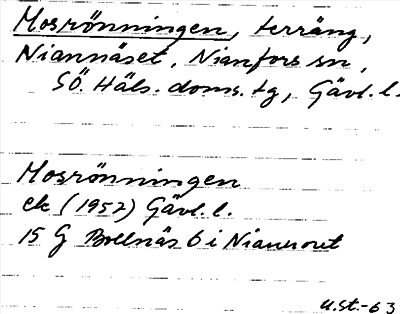 Mosrönningen, terräng,
Niannäset, Nianfors sn,
SÖ. Häls. doms. tg, Gävl. l.
Mosrönningen
ek (1957) Gävl. l.
15 G Bollnäs 6 i
U.St.-63